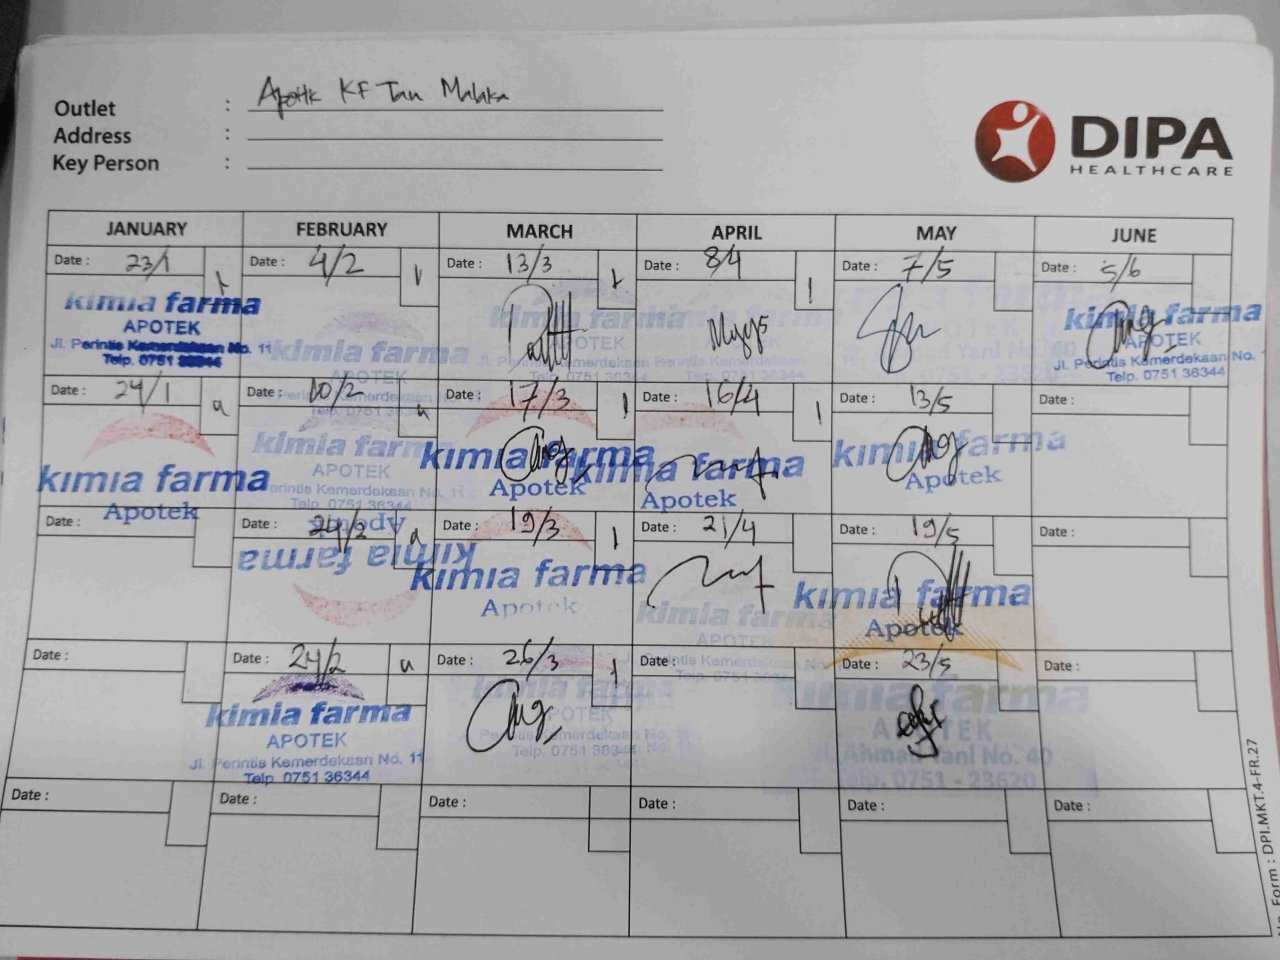 Outlet : Apotik KF Tan Malaka
Address :
Key Person :
DIPA
HEALTHCARE
JANUARY FEBRUARY MARCH APRIL MAY JUNE
Date : 23/1 Date : 4/2 Date : 13/3 Date : 8/4 Date : 7/5 Date : 5/6
kimia farma
APOTEK
Jl. Perintis Kemerdekaan No. 11
Telp. 0751 36344
kimia farma
APOTEK
kimia farma
APOTEK
Jl. Perintis Kemerdekaan No.
Telp. 0751 36344
Date : 24/1 Date : 10/2 Date : 17/3 Date : 16/4 Date : 13/5 Date :
kimia farma
Apotek
kimia farma
APOTEK
Perintis Kemerdekaan No. 11
Telp. 0751 36344
kimia farma
Apotek
kimia farma
Apotek
kimia farma
Apotek
Date : Date : 24/2 Date : 19/3 Date : 21/4 Date : 19/5 Date :
Apotek
kimia farma
kimia farma
Apotek
kimia farma
APOTEK
kimia farma
Apotek
Date : Date : 24/2 Date : 26/3 Date : Date : 23/5 Date :
kimia farma
APOTEK
Jl. Perintis Kemerdekaan No. 11
Telp. 0751 36344
kimia farma
APOTEK
kimia farma
APOTEK
Jl. Ahmad Yani No. 40
Telp. 0751 - 23620
Date : Date : Date : Date : Date : Date :
Form : DPI.MKT.4-FR.27